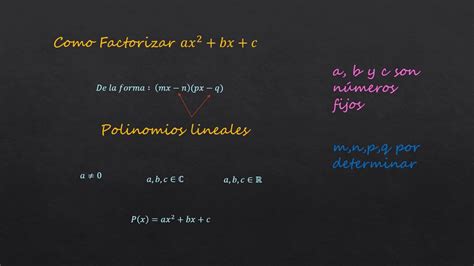 Como Factorizar ax² + bx + c
De la forma : (mx − n)(px − q)
Polinomios lineales
a ≠ 0
a, b, c ∈ ℂ
a, b, c ∈ ℝ
P(x) = ax² + bx + c
a, b y c son
números
fijos
m,n,p,q por
determinar